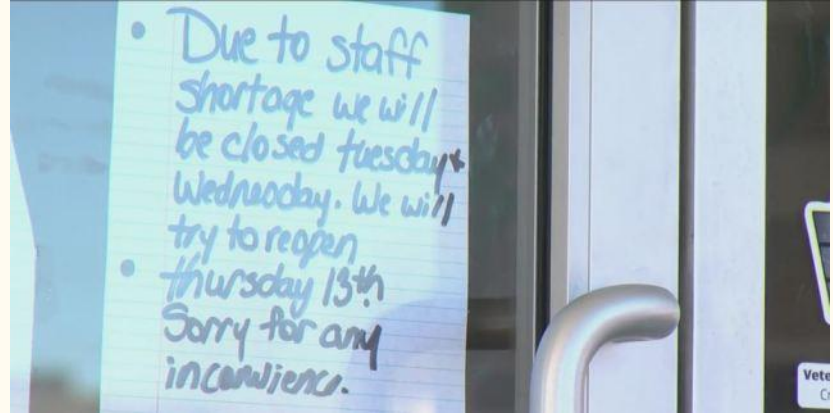 Due to staff
shortage we will
be closed tuesday +
Wednesday. We will
try to reopen
thursday 13th
Sorry for any
inconvienc.
Vete